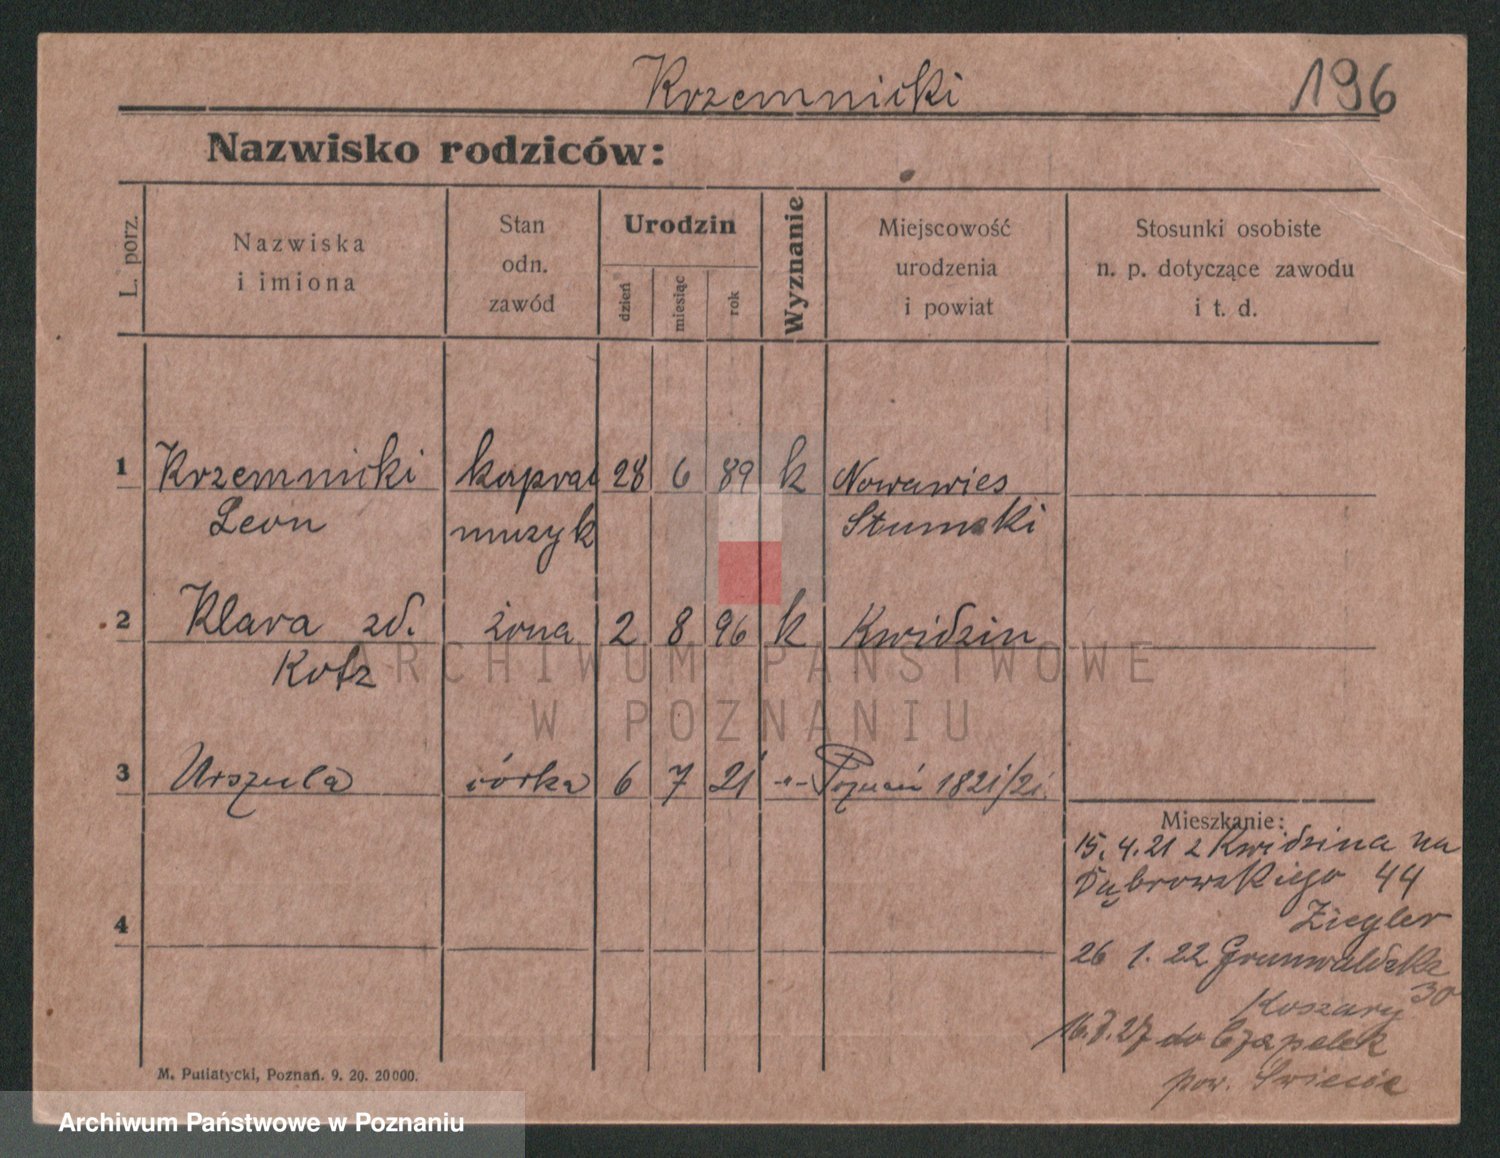 Krzemnicki 196
Nazwisko rodziców:
L. porz.
Nazwiska
i imiona
Stan
odn.
zawód
Urodzin
dzień
miesiąc
rok
Wyznanie
Miejscowość
urodzenia
i powiat
Stosunki osobiste
n. p. dotyczące zawodu
i t. d.
1 Krzemnicki kapral 28 6 89 k Nowawies
Leon muzyk Stumski
2 Klara zd. żona 2 8 96 k Kwidzin
Kotz
3 Urszula córka 6 7 21 -"- Poznań 1821/21.
4
Mieszkanie:
15. 4. 21 z Kwidzina na
Dąbrowskiego 44
Ziegler
26 1. 22 Grunwaldzka
30
Koszary
do Czapelek
pow. Świecie
M. Putiatycki, Poznań. 9. 20. 20000.
ARCHIWUM PAŃSTWOWE
W POZNANIU
Archiwum Państwowe w Poznaniu